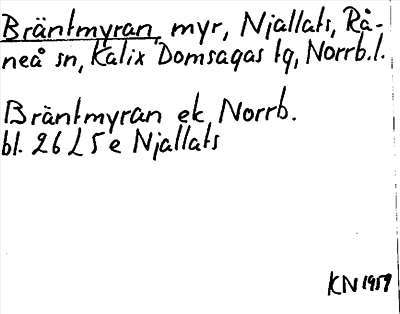 Bräntmyran, myr, Njallats, Rå-
neå sn, Kalix Domsagas tg, Norrb.l.
Bräntmyran ek, Norrb.
bl. 26 L 5 e Njallats
KN 1959